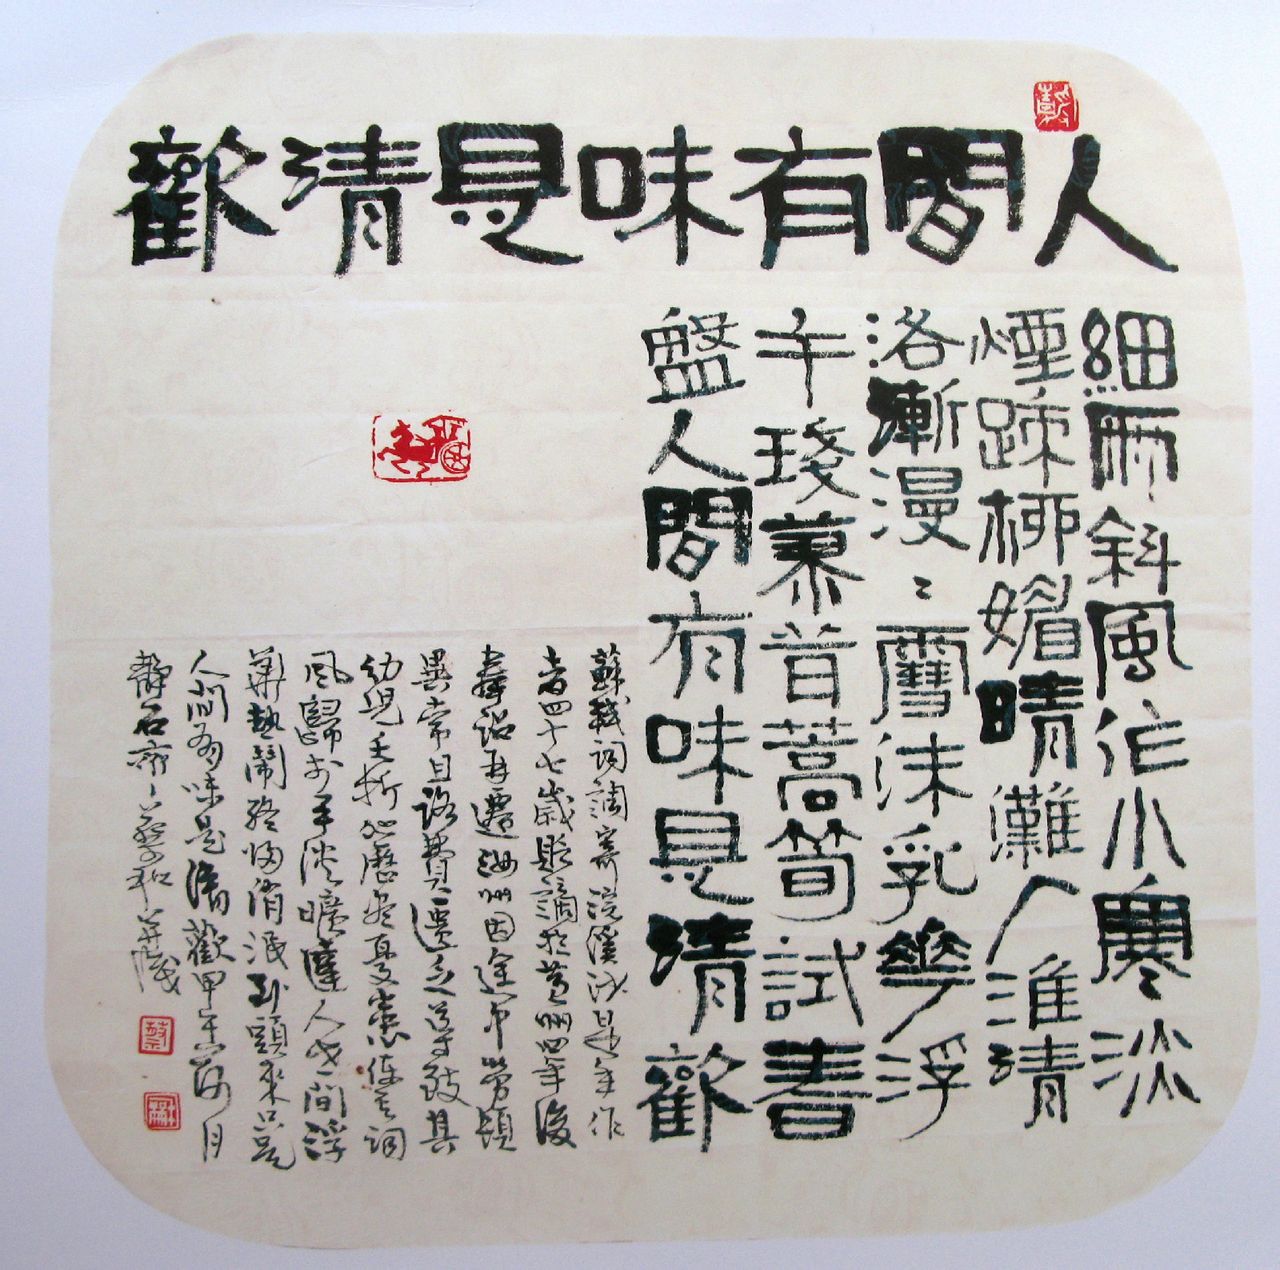 人間有味是清歡
細雨斜風作小寒淡
煙疎柳媚晴灘入淮清
洛漸漫〻雪沫乳華浮
午琖蓼茸蒿筍試春
盤人間有味是清歡
蘇軾詞調寄浣溪沙是年作
者四十七歲貶謫於黃州四年後
奉詔再遷汝州因途中勞頓
異常且路費遺乏等致其
幼兒夭折歷盡憂患使其詞
風歸于平淡曠達人世間浮
華熱鬧終歸消泯到頭來只是
人間有味是清歡甲午荷月
靜石齋